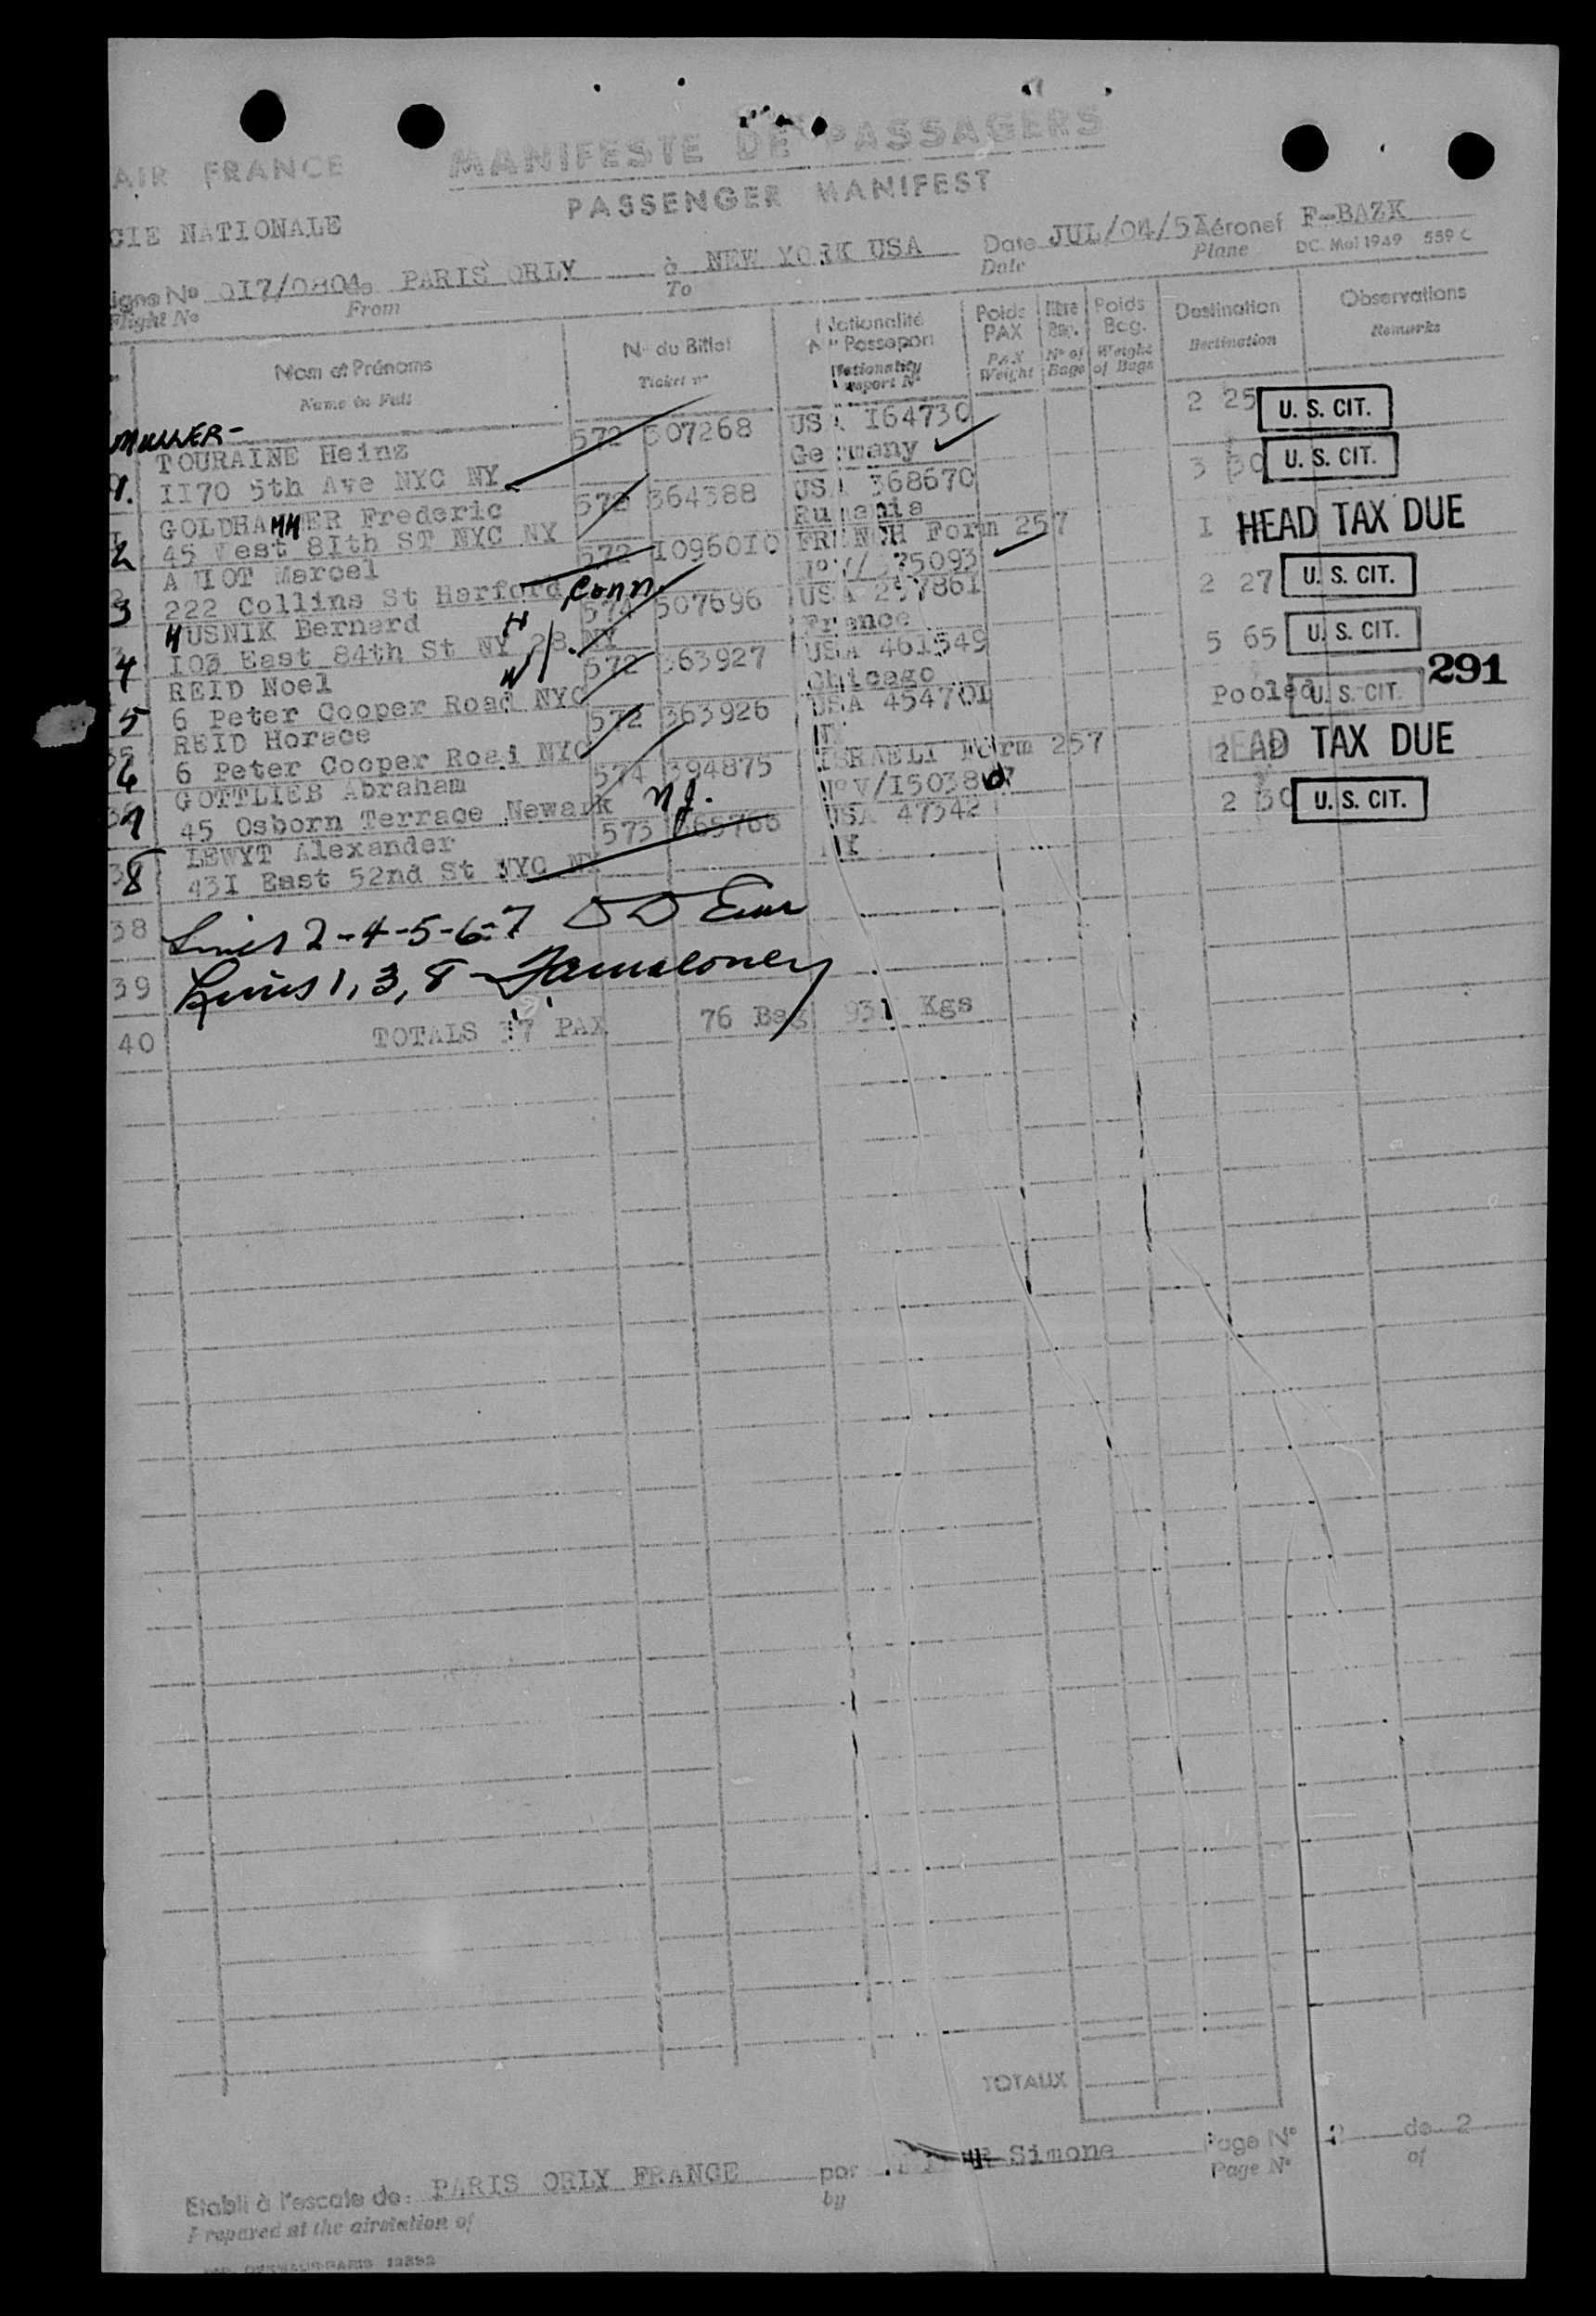 AIR FRANCE
MANIFESTE DE PASSAGERS
PASSENGER MANIFEST
CIE NATIONALE
igne No 017/0804 de PARIS ORLY à NEW YORK USA Date JUL/04/5 Aéronef F-BAZK
Flight No From To Date Plane DC. Mai 1949 559 C
Nom et Prénoms No du Billet Nationalité No Passeport Poids PAX Nbre Bag. Poids Bag. Destination Observations
Name in Full Ticket no Nationality PAX Weight No of Bags Weight of Bags Destination Remarks
MULLER-
TOURAINE Heinz 572 507268 USA I64730 2 25 U. S. CIT.
1. II70 5th Ave NYC NY Germany
GOLDHAMMER Frederic 572 364388 USA 368670 3 30 U. S. CIT.
2 45 West 8Ith ST NYC NY Rumania
Marcel 572 I0960I0 FRENCH Form 257 I HEAD TAX DUE
3 222 Collins St Harford Conn
HUSNIK Bernard 574 507696 USA 257861 2 27 U. S. CIT.
4 I03 East 84th St NY 28 NY France
REID Noel 572 363927 USA 461549 5 65 U. S. CIT.
5 6 Peter Cooper Road NYC Chicago
REID Horace 572 363926 USA 45470I Pooled U. S. CIT. 291
6 6 Peter Cooper Road NYC NY
GOTTLIEB Abraham 574 394875 ISRAELI Form 257 HEAD TAX DUE
7 45 Osborn Terrace Newark N.J.
LEWYT Alexander 573 USA 47342 2 30 U. S. CIT.
8 43I East 52nd St NYC NY NY
38 Lines 2-4-5-6-7
39 Lines 1, 3, 8
40 TOTALS 37 PAX 76 Bag Kgs
TOTAUX
Etabli à l'escale de: PARIS ORLY FRANCE par Simone Page No 2 de 2
Prepared at the airstation of by Page No of